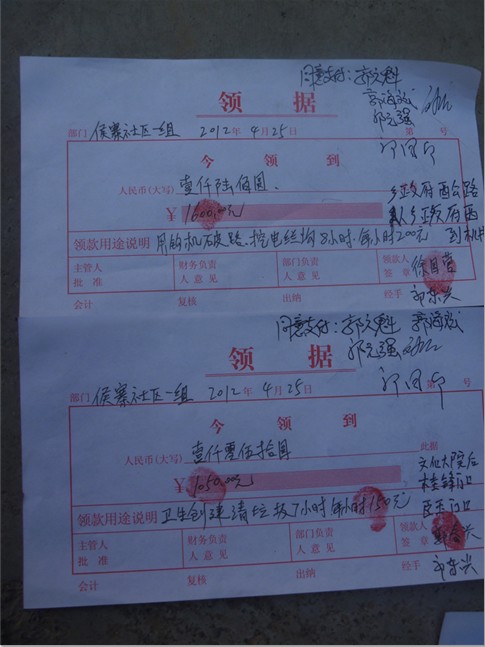 同意支付：郭文魁
郭海斌
郭元强
领 据
部门 侯寨社区一组 2012年4月25日 第 号
今 领 到
人民币(大写) 壹仟陆佰圆.
¥ 1600.00元
乡政府西公路
乡政府西
领款用途说明 用钩机破路.挖电缆沟8小时.每小时200元
主管人
批 准
财务负责
人 意 见
部门负责
人 意 见
领款人
签 章
会计 复核 出纳 经手 郭东兴
同意支付：郭文魁 郭海斌
郭元强
领 据
部门 侯寨社区一组 2012年4月25日 第 号
今 领 到
人民币(大写) 壹仟零伍拾圆 此据
¥ 1050.00元
文化大院后
门口
门口
领款用途说明 卫生创建清垃圾7小时每小时150元
主管人
批 准
财务负责
人 意 见
部门负责
人 意 见
领款人
签 章
会计 复核 出纳 经手 郭东兴